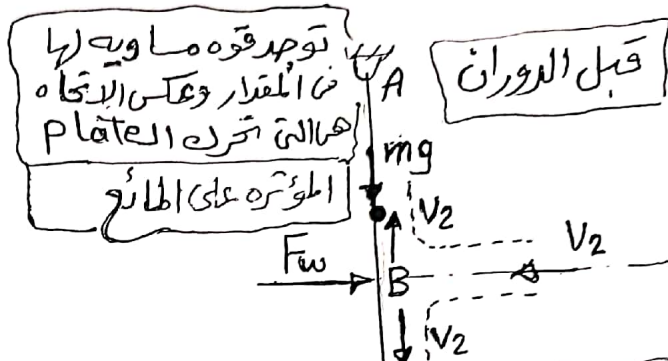 توجد قوه مساويه لها
فى المقدار وعكس الإتجاه
هى التى تحرك الـ plate
المؤثره على المائع
قبل الدوران
A
mg
V2
V2
Fw
B
V2